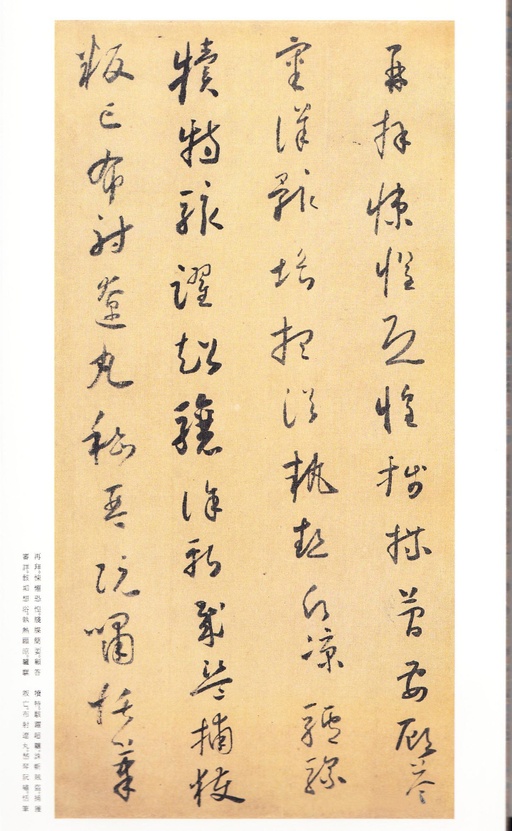 再拜悚懼恐惶牋牒簡要顧答
審詳骸垢想浴執熱願涼驢騾
犢特駭躍超驤誅斬賊盜捕獲
叛亡布射遼丸嵇琴阮嘯恬筆
再拜,悚懼恐惶。牋牒簡要,顧答
審詳。骸垢想浴,執熱願涼。驢騾
犢特,駭躍超驤。誅斬賊盜,捕獲
叛亡。布射遼丸,嵇琴阮嘯。恬筆